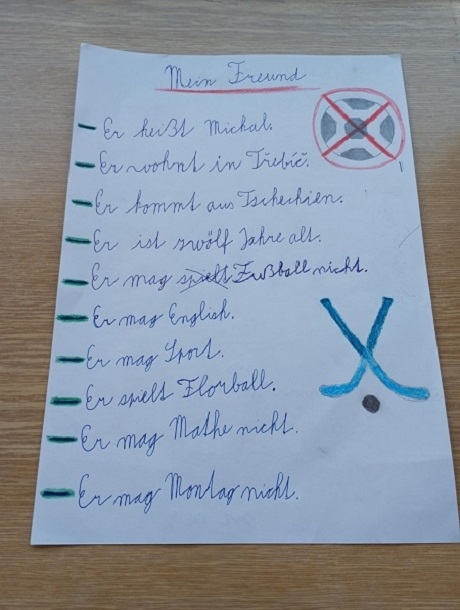 Mein Freund
Er heißt Michal.
Er wohnt in Třebíč.
Er kommt aus Tschechien.
Er ist zwölf Jahre alt.
Er mag spielt Fußball nicht.
Er mag English.
Er mag Sport.
Er spielt Florball.
Er mag Mathe nicht.
Er mag Montag nicht.